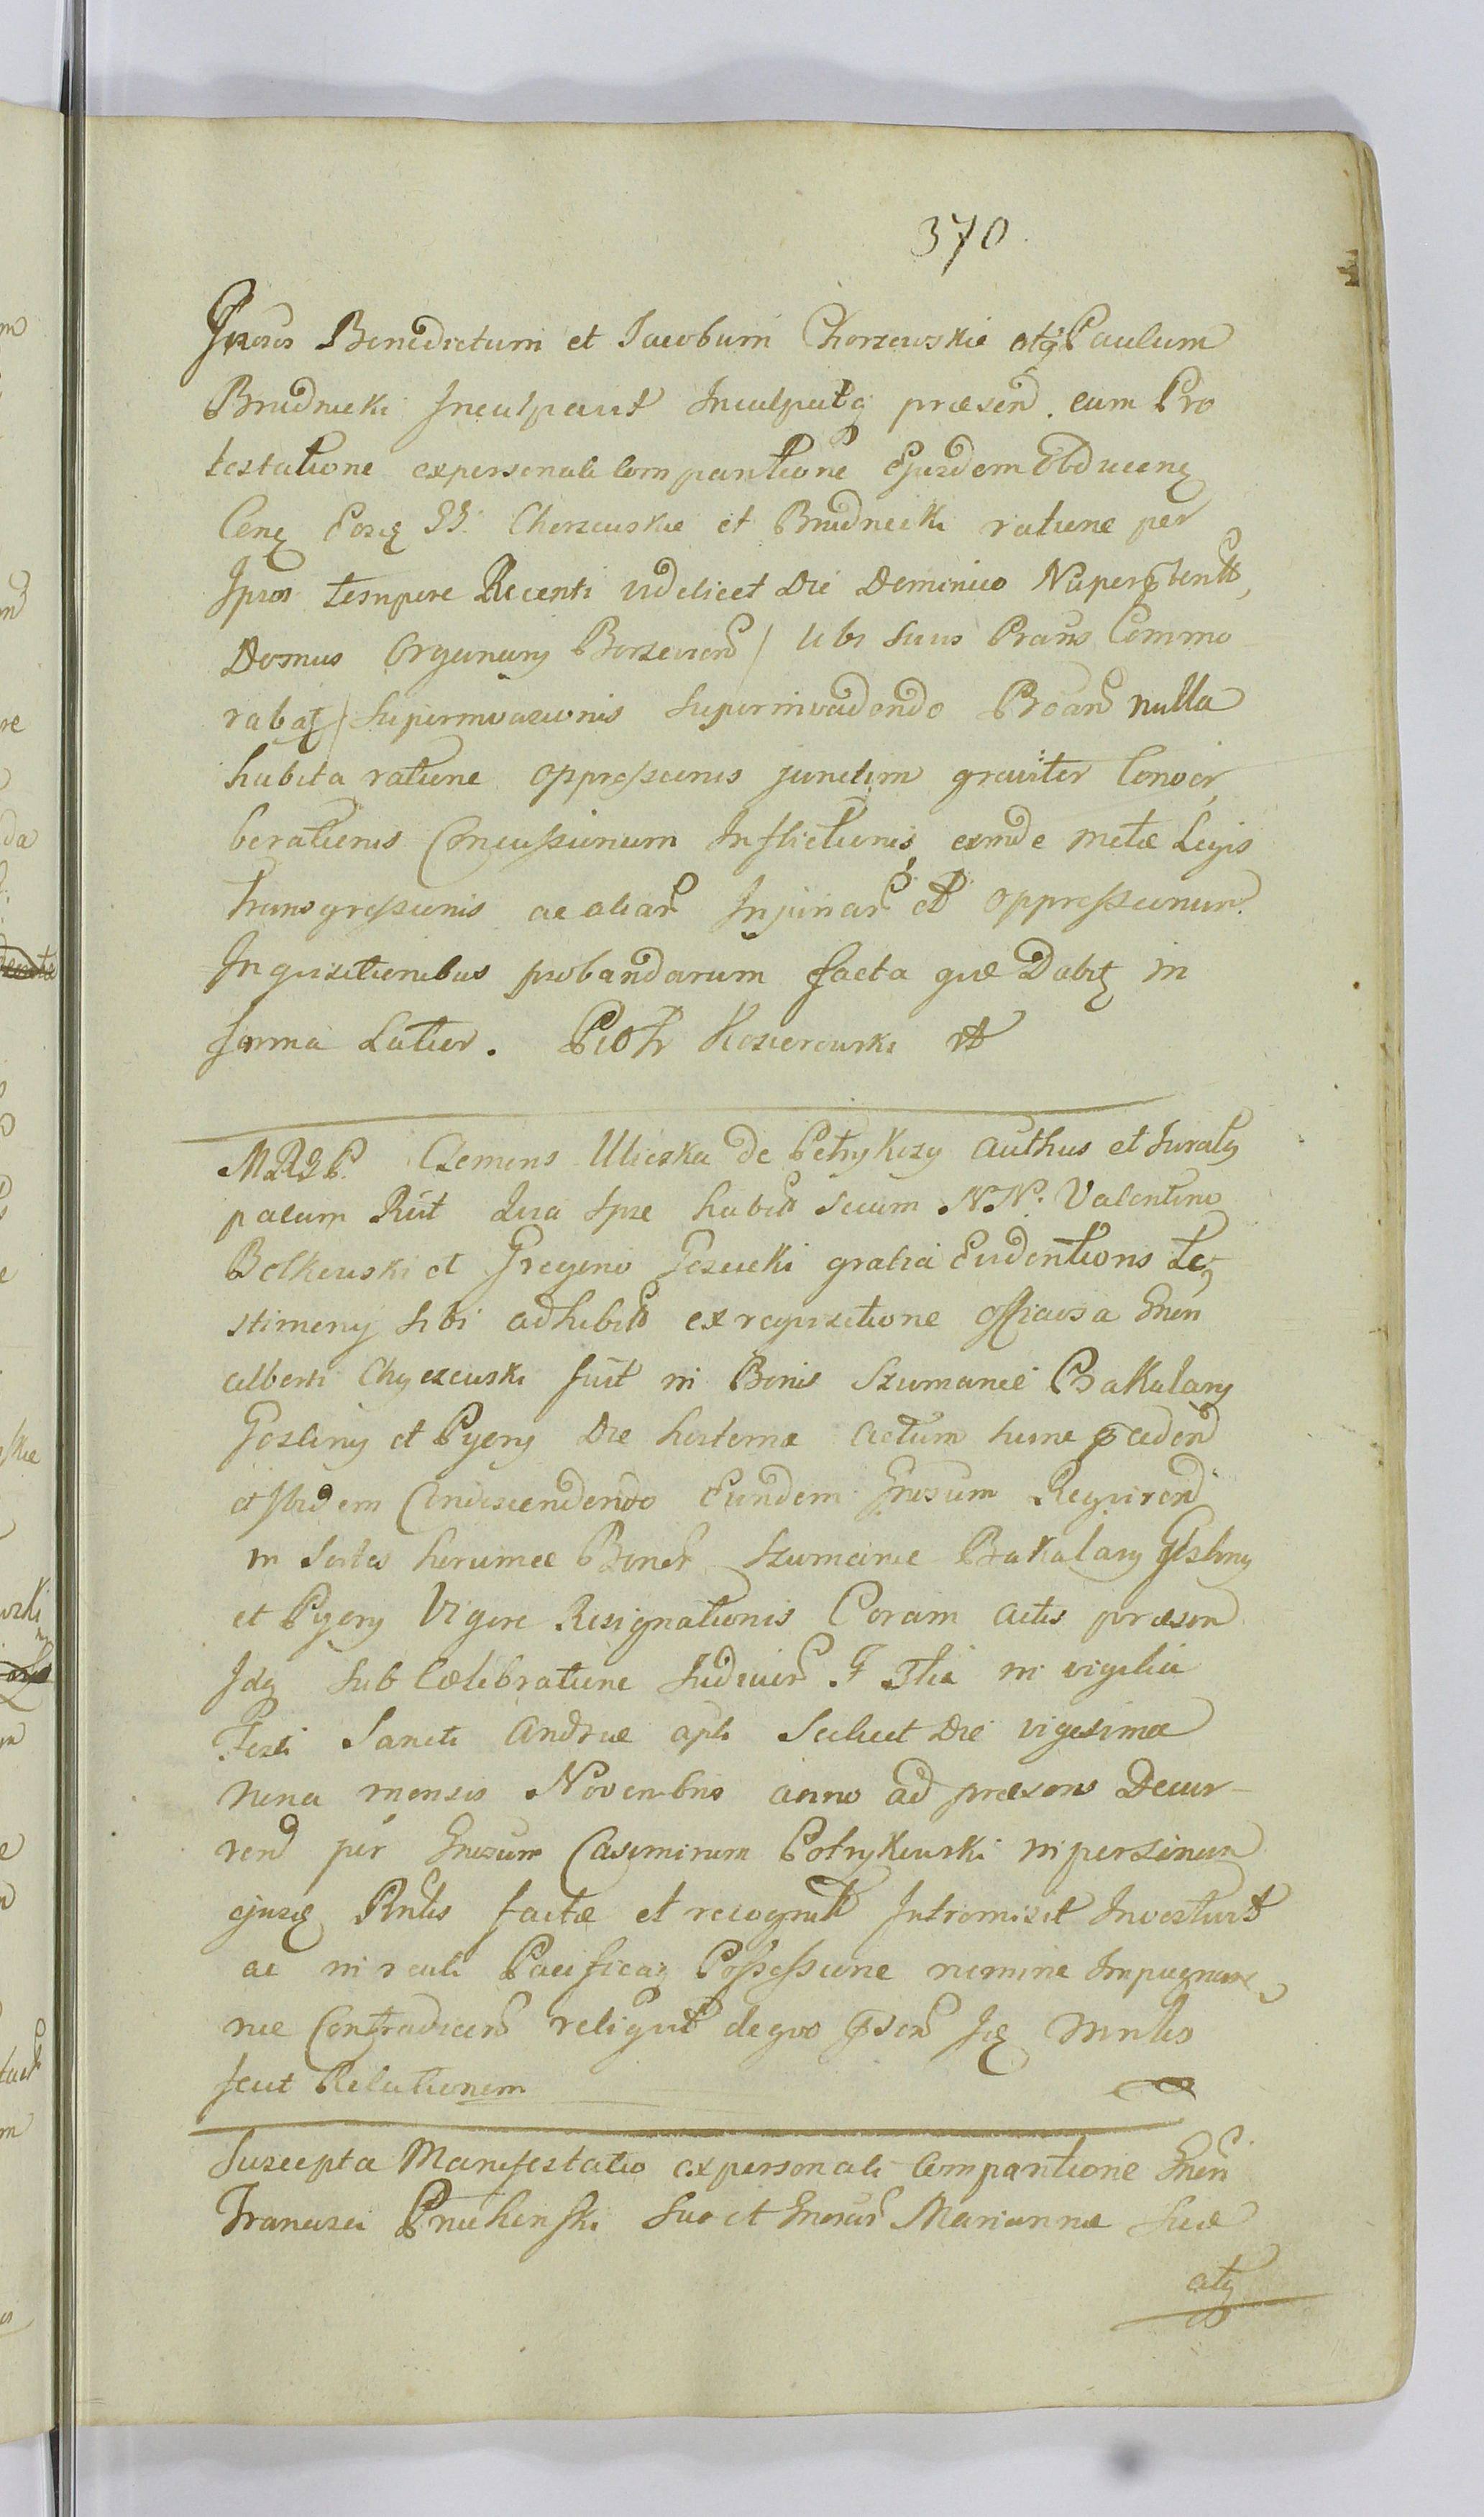 370.
Gnosos Benedictum et Jacobum Chorzewskie atq Paulum
Brudnicki Inculpavit Inculpatq praesend. cum Pro
testatione ex personali Comparitione Ejusdem Obducenq
Cenq Eosq GG. Chorzewskie et Brudnicki ratione per
Ipsos tempore Recenti videlicet Die Dominico Nuper
Domus Organary Borzecien / Ubi Suus Prans Commo
rabat / Superinvasionis Superinvadendo Proan nulla
habita ratione oppressionis junctim graviter Conver
berationis Concussionum Inflictionis, exinde metae Legis
Transgressionis ac aliar Injuriar et oppressionum
Inquisitionibus probandarum facta quae Dabitq in
forma Latior. Piotr Kosierowski
MRGP. Clemens Ulicska de Petrykozy Authus et Juratq
palam Rcūt Quia Ipse habit Secum NN. Valentino
Bolkowski et Gregorio Goscicki gratia Evidentioris Te
stimony Sibi adhibit ex requisitione officiosa Gnen
Alberti Chyczewski fūit in Bonis Szumanie Bakalary
Gozliny et Pyory Die hesterna actum hunc pcedend
et Ibidem Condescendendo Eundem Gnosum Requirend
in Sortes horumce Bonor Szumanie Bakalary Gozliny
et Pyory Vigore Resignationis Coram actis praesen
Idq Sub Caelebratione Judicior in vigilia
Festi Sancti Andreae apli Scilicet Die vigesima
nona mensis Novembris anno ad praesens Decur-
rend per Gnosum Casimirum Potrykowski in personam
ejusq Rntis factae et recognit Intromisit Investivit
ac in reali Pacificaq Possessione nemine Impugnan
nec Contradicen reliquit de quo psen Jq Mntis
fecit Relationem
Suscepta Manifestatio ex personali Comparitione Gnen
Francisci Pruchenski Suo et Gnosar Mariannae Suae
atq